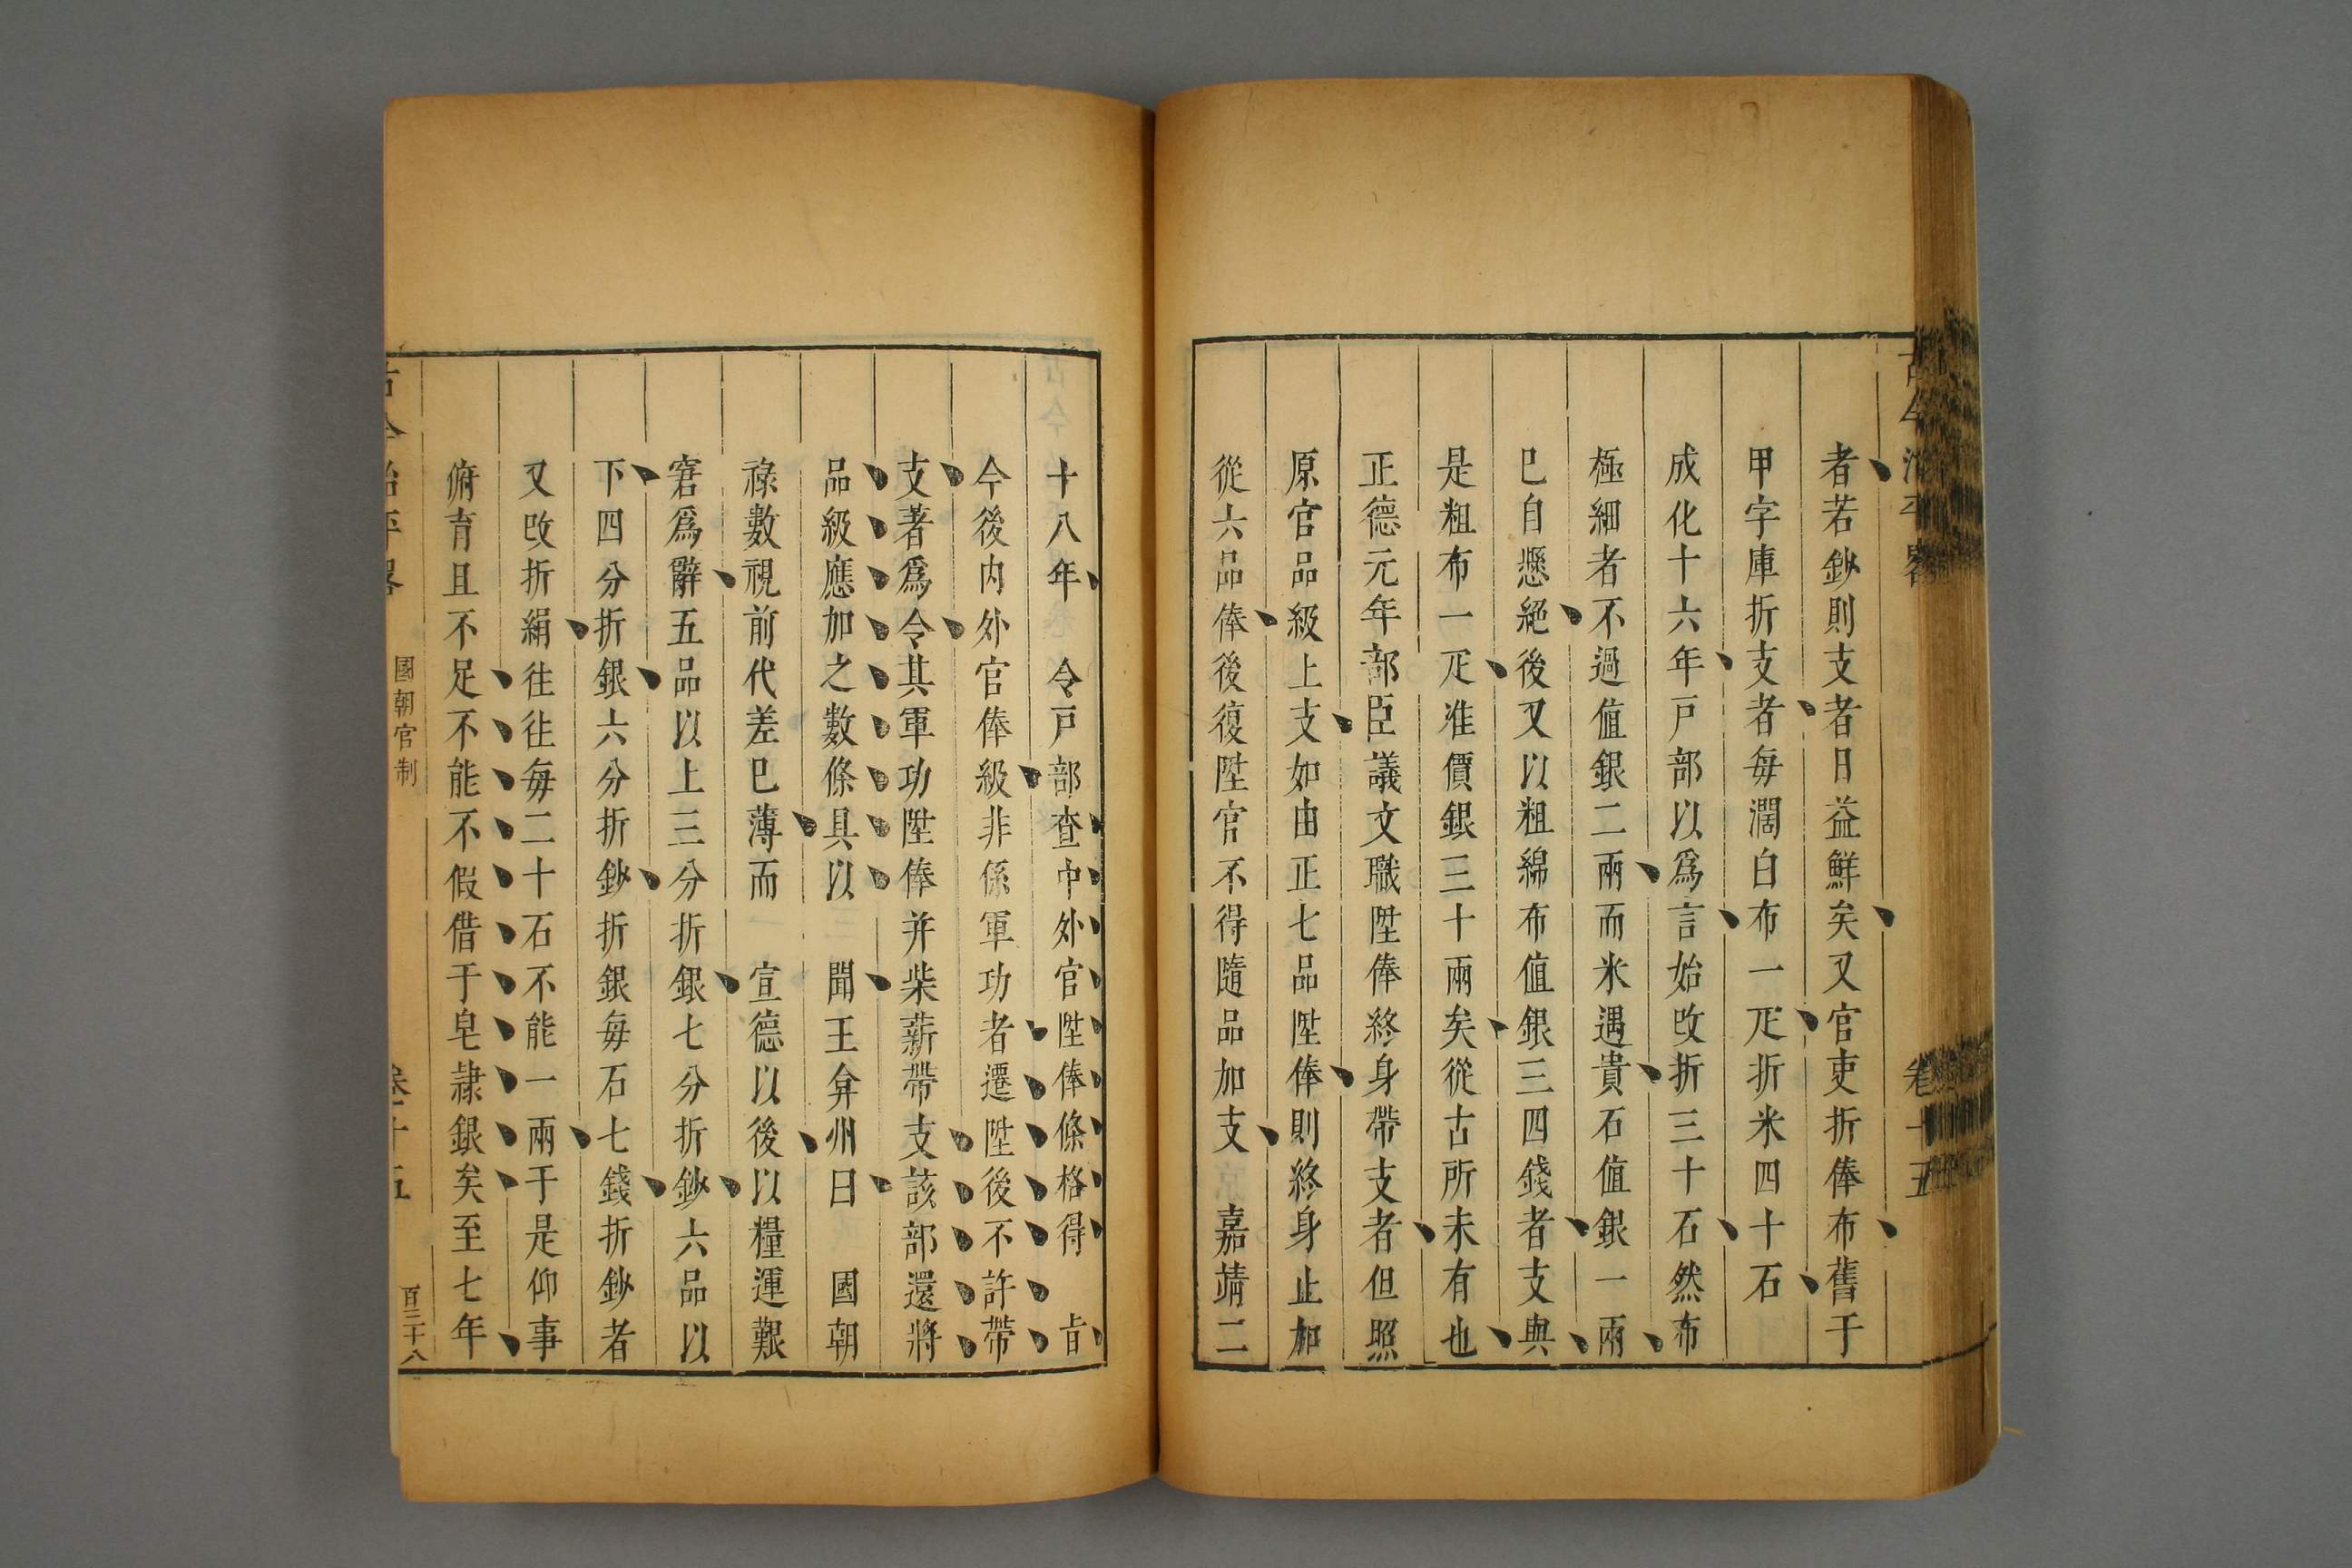 古今治平畧 卷十五
者若鈔則支者日益鮮矣又官吏折俸布舊于
甲字庫折支者每濶白布一疋折米四十石
成化十六年戶部以爲言始改折三十石然布
極細者不過值銀二兩而米遇貴石值銀一兩
巳自懸絕後又以粗綿布值銀三四錢者支與
是粗布一疋准價銀三十兩矣從古所未有也
正德元年部臣議文職陞俸終身帶支者但照
原官品級上支如由正七品陞俸則終身止加
從六品俸後復陞官不得隨品加支 嘉靖二
十八年 令戶部查中外官陞俸條格得 旨
今後内外官俸級非係軍功者遷陞後不許帶
支著爲令其軍功陞俸并柴薪帶支該部還將
品級應加之數條具以 聞王弇州曰 國朝
祿數視前代差巳薄而 宣德以後以糧運艱
窘爲辭五品以上三分折銀七分折鈔六品以
下四分折銀六分折鈔折銀每石七錢折鈔者
又改折絹往往每二十石不能一兩于是仰事
俯育且不足不能不假借于皂隷銀矣至七年
古今治平畧 國朝官制 卷十五 百三十八